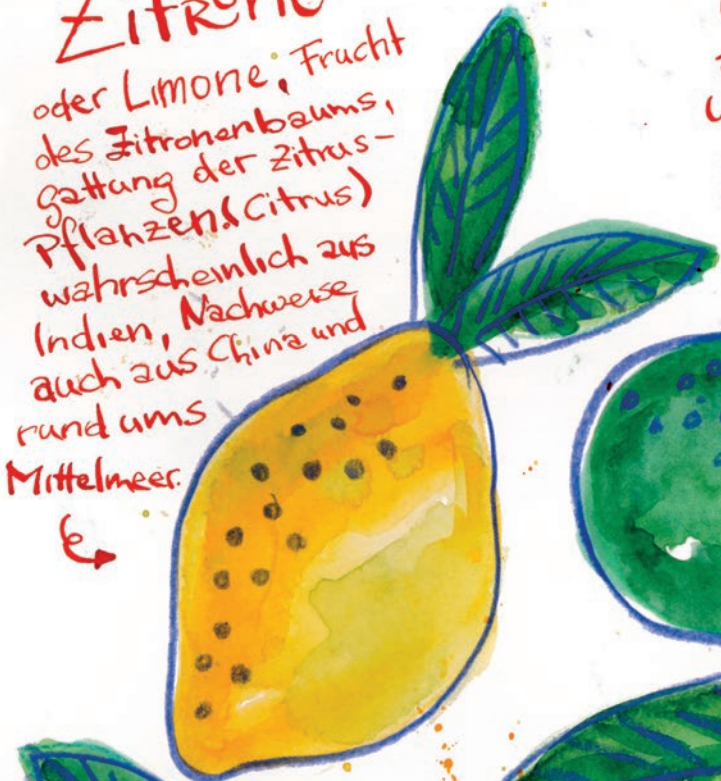 Zitrone
oder Limone, Frucht
des Zitronenbaums,
gattung der Zitrus-
Pflanzen (Citrus)
wahrscheinlich aus
Indien, Nachweise
auch aus China und
rund ums
Mittelmeer.